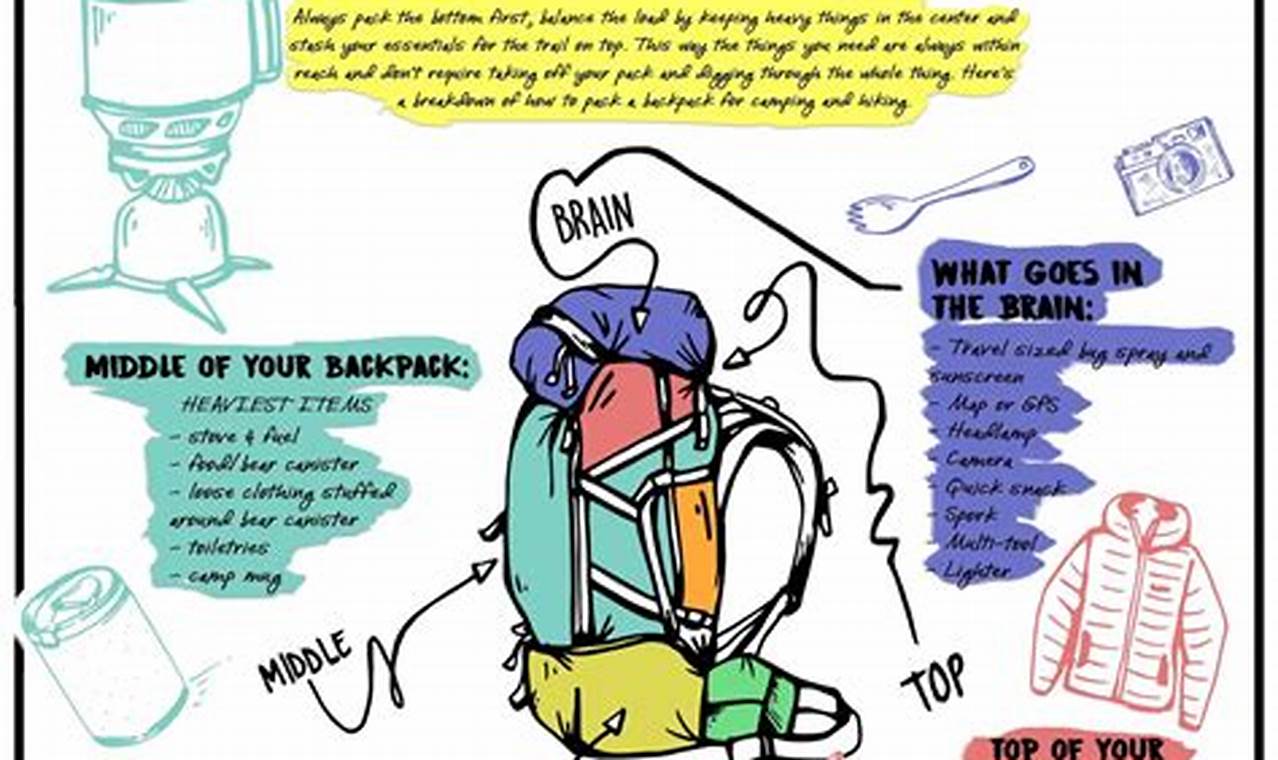 Always pack the bottom first, balance the load by keeping heavy things in the center and
stash your essentials for the trail on top. This way the things you need are always within
reach and don't require taking off your pack and digging through the whole thing. Here's
a breakdown of how to pack a backpack for camping and hiking.
BRAIN
WHAT GOES IN
THE BRAIN:
- Travel sized bug spray and
sunscreen
- Map or GPS
- Headlamp
- Camera
- Quick snack
- Spork
- Multi-tool
- Lighter
MIDDLE OF YOUR BACKPACK:
HEAVIEST ITEMS
- stove & fuel
- food/bear canister
- loose clothing stuffed
around bear canister
- toiletries
- camp mug
MIDDLE
TOP
TOP OF YOUR